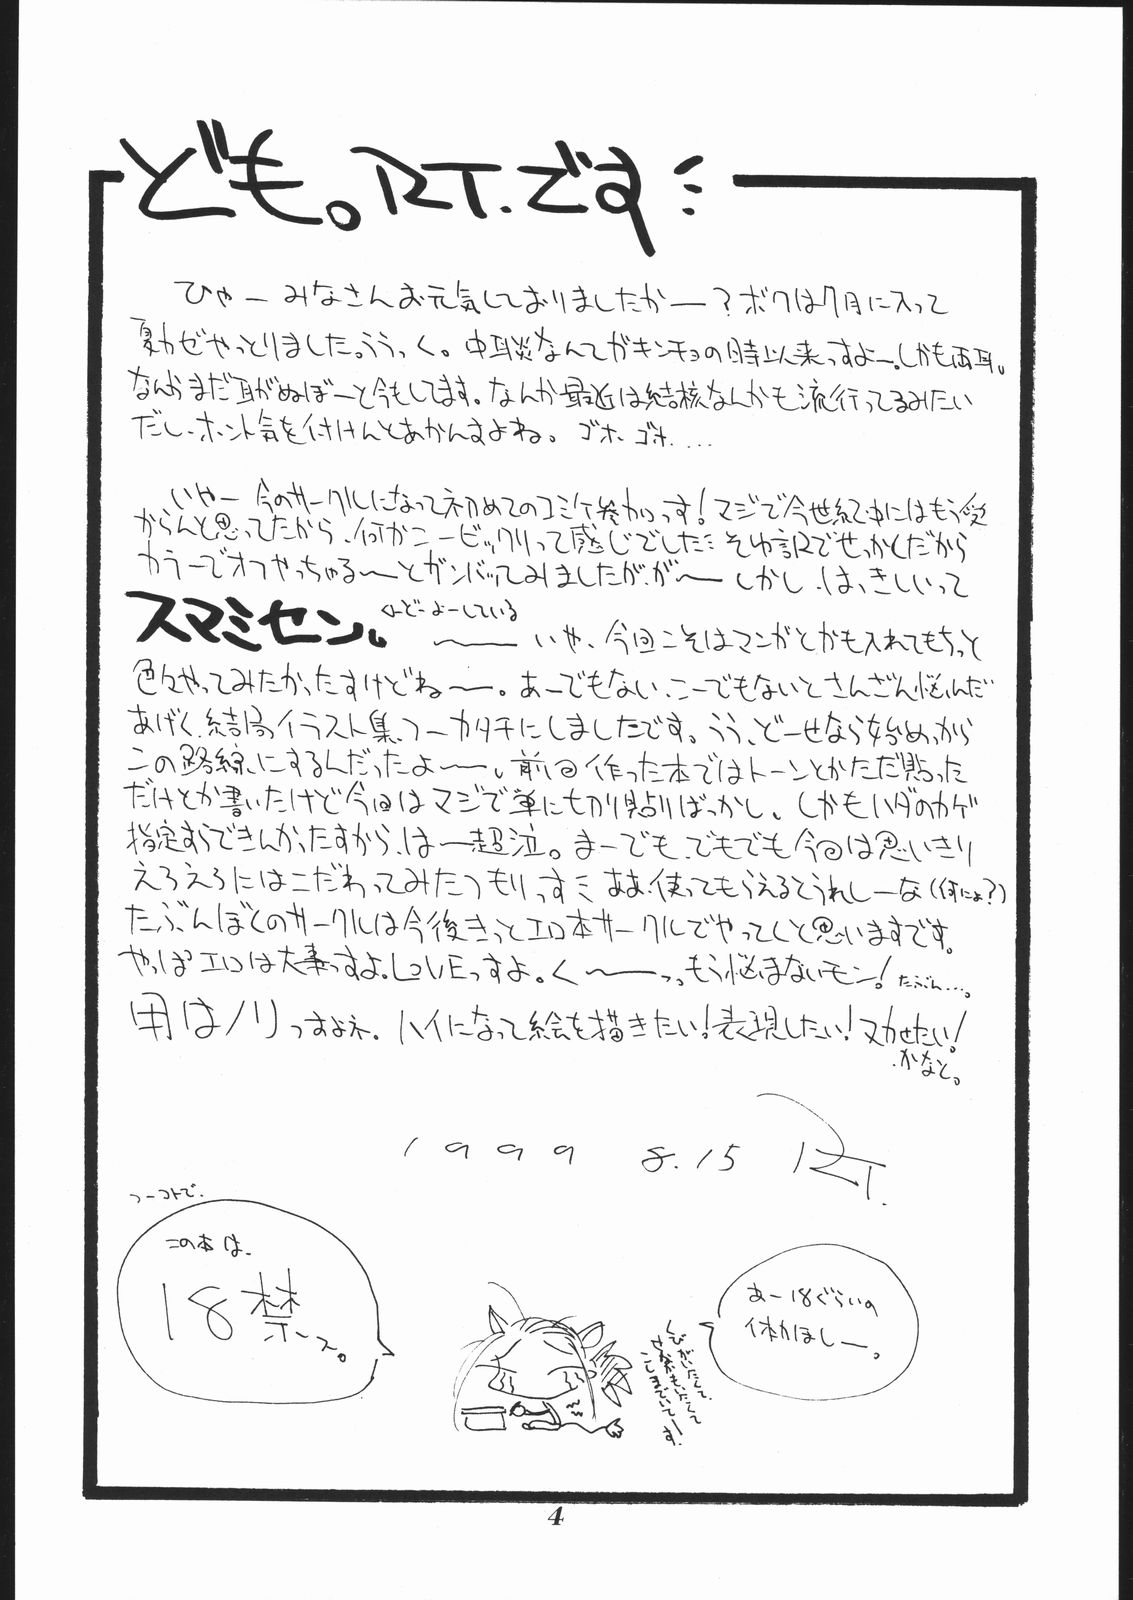 ども。RT.です
ひゃーみなさんお元気しておりましたかー？ボクは7月に入って
夏カゼやっとりました。ううっく。中耳炎なんてガキンチョの時以来っすよー。しかも両耳。
なんかまだ耳がぬぼーと今もしてます。なんか最近は結核なんかも流行ってるみたい
だし、ホント気を付けんとあかんすよね。ゴホ、ゴホ....
いやー今のサークルになって初めてのコミケ参加っす！マジで今世紀中にはもう受
からんと思ってたから、何かこービックリって感じでした そゆ訳でせっかくだから
カラーでオフやっちゃる〜とガンバッてみましたが、が〜しかし、は、きしいって
スマミセン。
←どーよーしている
〜いや、今回こそはマンガとかも入れてもちっと
色々やってみたかったすけどね〜。あーでもない、こーでもないとさんざん悩んだ
あげく、結局イラスト集、つーカタチにしましたです。うう、どーせなら始めっから
この路線、にするんだったよ〜。前回作った本ではトーンとかただ貼った
だけとか書いたけど今回はマジで単に切り貼りばっかし、しかもハダのカゲ
指定すらできんかったすから、はー超泣。まーでも、でもでも今回は思いきり
えろえろにはこだわってみたつもりっす ああ、使ってもらえるとうれしーな（何にょ？）
たぶんぼくのサークルは今後きっとエロ本サークルでやってくと思いますです。
やっぱエロは大事っすよ。LOVEっすよ。く〜っっもう悩まないモン！たぶん...。
用はノリっすよネ。ハイになって絵を描きたい！表現したい！ヌカせたい！
かなと。
1999 8.15 RT.
つーコトで、
この本は、
18禁ーっ。
あー18ぐらいの
体力ほしー。
くびがいたくて、
せなかもいたくて
こしまでいてーす。
4